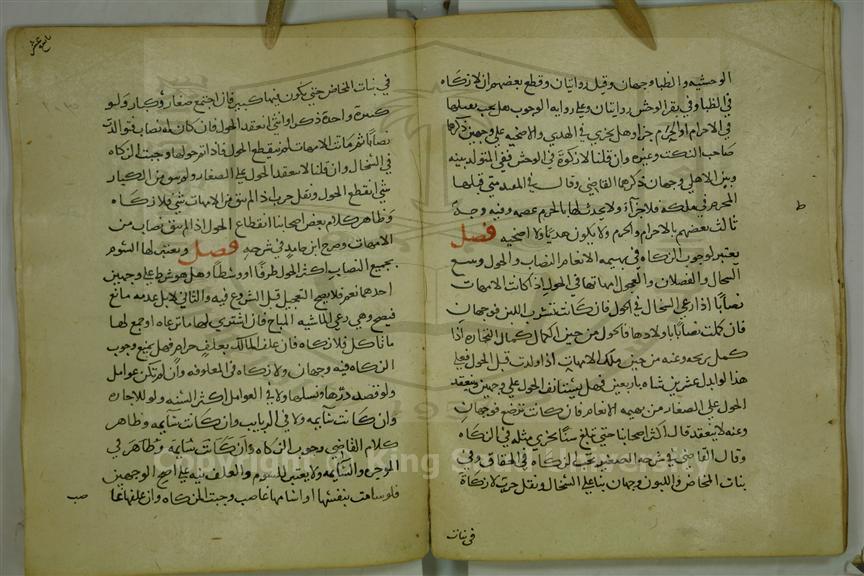 الوحشيه والظبا وجهان وقيل روايتان وقطع بعضهم ان لا زكاه
في الظبا وفي بقر الوحش روايتان وعلى روايه الوجوب هل يجب بقتلها
في الاحرام او الحرم جزا وهل يجزي في الهدي والاضحيه على وجهين ذكرهما
صاحب النكت وغيره وان قلنا لا زكوة في الوحش ففي المتولد بينه
وبين الاهلي وجهان ذكرهما القاضي وقال في متى قتلها
المحرم في ملكه فلا جزاء ولا يحدث لها بالحرم عصمه وفيه وجه
ثالث بعضهم بالاحرام والحرم ولا يكون هديا ولا اضحيه فصل
يعتبر لوجوب الزكاه في بهيمه الانعام النصاب والحول ويتبع
السخال والفصلان والعجول امهاتها في الحول اذا كانت الامهات
نصابا اذا رعي السخال في الحول فان كانت تشرب اللبن فوجهان
فان كملت نصابا باولادها فالحول من حين الكمال كمال التجاره اذا
كمل بربحه وعنه من حين ملك الامهات اذا ولدت قبل الحول فعلى
هذا لو ابدل عشرين شاه باربعين فهل يستانف الحول على وجهين وينعقد
الحول على الصغار من بهيمه الانعام فان كانت ترضع فوجهان
وعنه لا ينعقد قال اكثر اصحابنا حتى تبلغ سنا يجزي مثله في الزكاه
وقال القاضي في شرحه الصغير تجب الزكاه في الحقاق وفي
بنات المخاض واللبون وجهان بنا على السخال ونقل حرب لا زكاة
في بنات
في بنات المخاض حتى يكون فيها كبير فان اجتمع صغار وكبار ولو
كبيرة واحدة ذكر او انثى انعقد الحول فان كان له نصاب فتوالدت
نصابا ثم ماتت الامهات لم ينقطع الحول فاذا تم حولها وجبت الزكاه
في السخال وان قلنا لا ينعقد الحول على الصغار ولو بقي من الكبار
شي انقطع الحول ونقل حرب اذا لم يبق من الامهات شي فلا زكاه
وظاهر كلام بعض اصحابنا انقطاع الحول اذا لم يبق نصاب من
الامهات وصرح ابن حامد في شرحه فصل ويعتبر لها السوم
بجميع النصاب اكثر الحول طرفا او وسطا وهل هو شرط على وجهين
احدهما نعم فلا يصح التعجيل قبل الشروع فيه والثاني لا بل عدمه مانع
فيصح وهي رعي الماشيه المباح فان اشترى لها ما ترعاه او جمع لها
ما تاكل فلا زكاه فان علف المالك بعلف حرام فهل يمنع وجوب
الزكاه فيه وجهان ولا زكاه في المعلوفه وان لم تكن عوامل
ولو قصد درها ونسلها ولا في العوامل اكثر السنه ولو للاجاره
وان كانت سايمه ولا في الربايب وان كانت سايمه وظاهر
كلام القاضي وجوب الزكاه وان كانت سايمة وظاهر في
الموجره والسايمه ولا يعتبر للسوم والعلف نيه على اصح الوجهين
فلو سامت بنفسها او اسامها غاصب وجبت الزكاه وان علفها غا
صب
Copyright © King Saud University